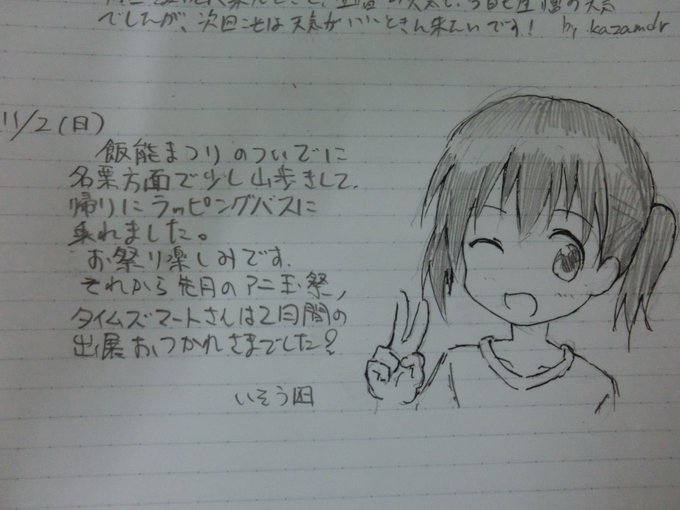 でしたが、次回こそは天気がいいときに来たいです! by kazamdr
11/2(日)
飯能まつりのついでに
名栗方面で少し山歩きして、
帰りにラッピングバスに
乗れました。
お祭り楽しみです。
それから先月のアニ玉祭、
タイムズマートさんは2日間の
出展おつかれさまでした?
いそう凪